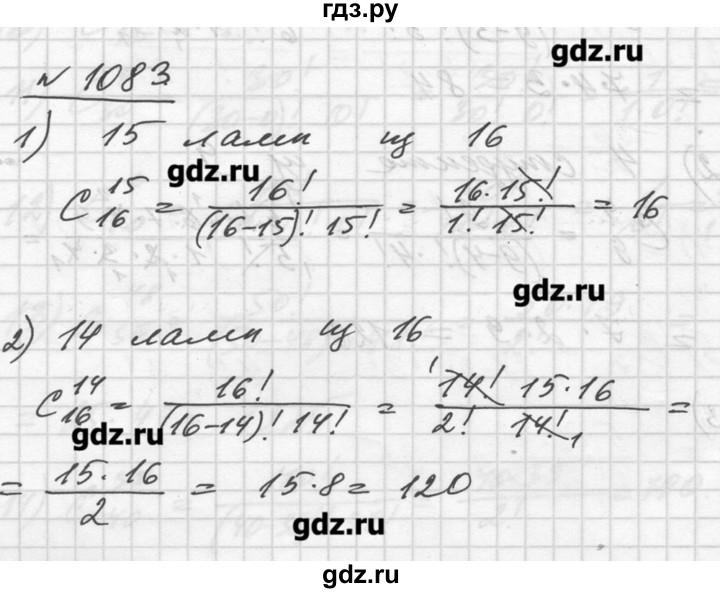 гдз.ру
gdz.ru
№ 1083
1) 15 ламп из 16
gdz.ru
C₁₆¹⁵ = 16! / (16-15)! 15! = 16·15! / 1! 15! = 16
gdz.ru
2) 14 ламп из 16
C₁₆¹⁴ = 16! / (16-14)! 14! = 14! 15·16 / 2! 14! =
gdz.ru
= 15·16 / 2 = 15·8 = 120
gdz.ru
gdz.ru